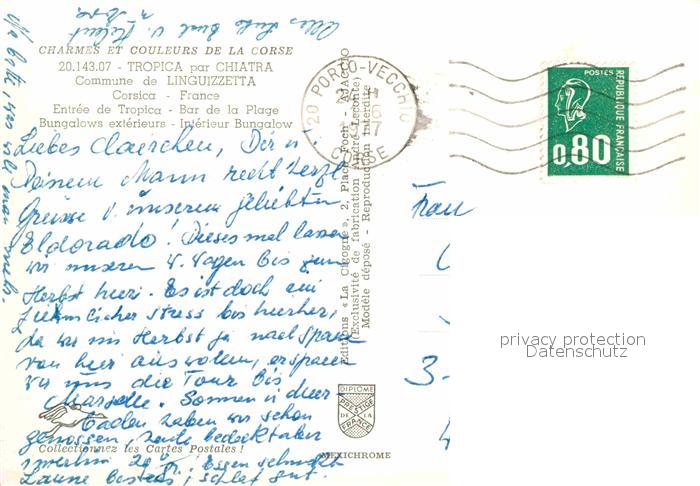 Alles Gute
CHARMES ET COULEURS DE LA CORSE
20.143.07 - TROPICA par CHIATRA
Commune de LINGUIZZETTA
Corsica - France
Entrée de Tropica - Bar de la Plage
Bungalows extérieurs - Intérieur Bungalow
Liebes Claerchen, Dir u.
Deinem Mann recht herzl.
Grüsse v. unserem geliebten
Eldorado! Dieses mal lassen
wir unseren W. Wagen bis zum
Herbst hier. Es ist doch ein
ziemlicher Stress bis hierher,
da wir im Herbst ja nach Spanien
von hier aus wollen, ersparen
wir uns die Tour bis
Marseille. Sonnen u. Meer-
baden haben wir schon
genossen, heute bedeckt aber
immerhin 20°. Essen schmeckt
Laune bestens, schlaf gut.
Collectionnez les Cartes Postales !
Editions « La Cigogne », 2, Place Foch - AJACCIO
(Exclusivité de fabrication André Leconte)
Modèle déposé - Reproduction interdite
DIPLOME
PRESTIGE
DE LA
FRANCE
MEXICHROME
20 PORTO-VECCHIO
CORSE
POSTES
REPUBLIQUE FRANÇAISE
0,80
Frau
3-
4
privacy protection
Datenschutz